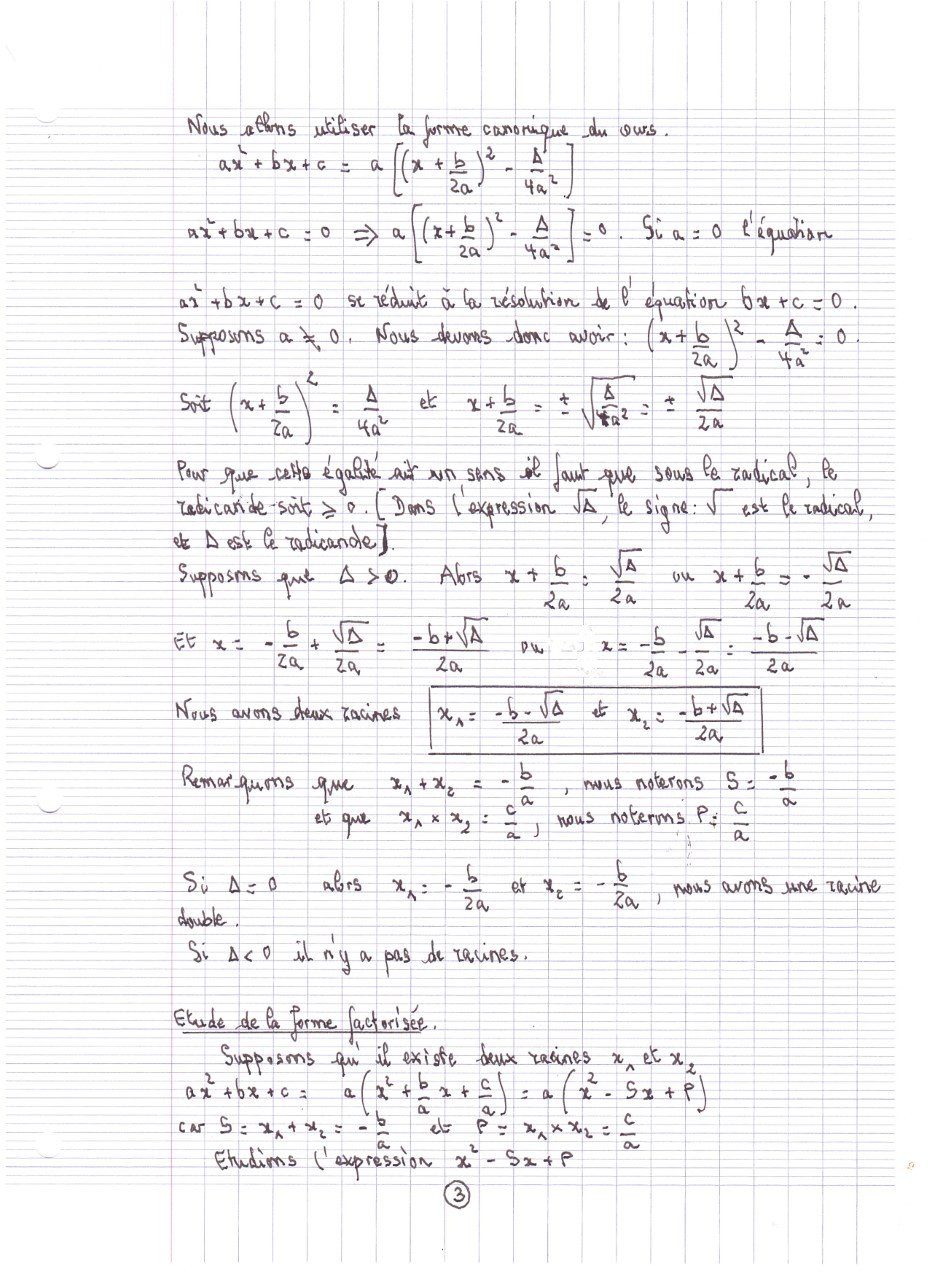 Nous allons utiliser la forme canonique du cours.
ax² + bx + c = a[(x + b/2a)² - Δ/4a²]
ax² + bx + c = 0 ⇒ a[(x + b/2a)² - Δ/4a²] = 0. Si a = 0 l'équation
ax² + bx + c = 0 se réduit à la résolution de l'équation bx + c = 0.
Supposons a ≠ 0. Nous devons donc avoir : (x + b/2a)² - Δ/4a² = 0.
Soit (x + b/2a)² = Δ/4a² et x + b/2a = ± √(Δ/4a²) = ± √Δ/2a
Pour que cette égalité ait un sens il faut que sous le radical, le
radicande soit ⩾ 0. [Dans l'expression √Δ, le signe : √ est le radical,
et Δ est le radicande].
Supposons que Δ > 0. Alors x + b/2a = √Δ/2a ou x + b/2a = - √Δ/2a
Et x = - b/2a + √Δ/2a = (-b + √Δ)/2a ou x = - b/2a - √Δ/2a = (-b - √Δ)/2a
Nous avons deux racines x₁ = (-b - √Δ)/2a et x₂ = (-b + √Δ)/2a
Remarquons que x₁ + x₂ = - b/a, nous noterons S = -b/a
et que x₁ × x₂ = c/a, nous noterons P = c/a
Si Δ = 0 alors x₁ = - b/2a et x₂ = - b/2a, nous avons une racine
double.
Si Δ < 0 il n'y a pas de racines.
Etude de la forme factorisée.
Supposons qu'il existe deux racines x₁ et x₂
ax² + bx + c = a(x² + b/a x + c/a) = a(x² - Sx + P)
car S = x₁ + x₂ = - b/a et P = x₁ × x₂ = c/a
Etudions l'expression x² - Sx + P
3